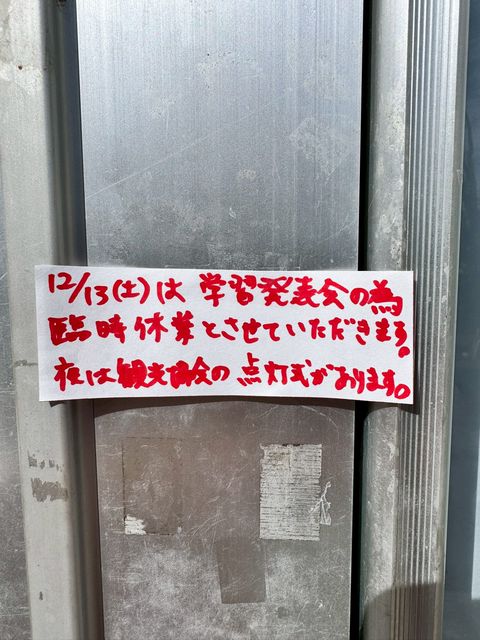 12/13(土)は 学習発表会の為
臨時休業とさせていただきます。
夜は観光協会の点灯式があります。